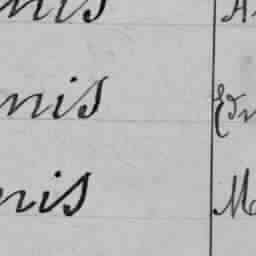 nis A
nis Edn
nis M